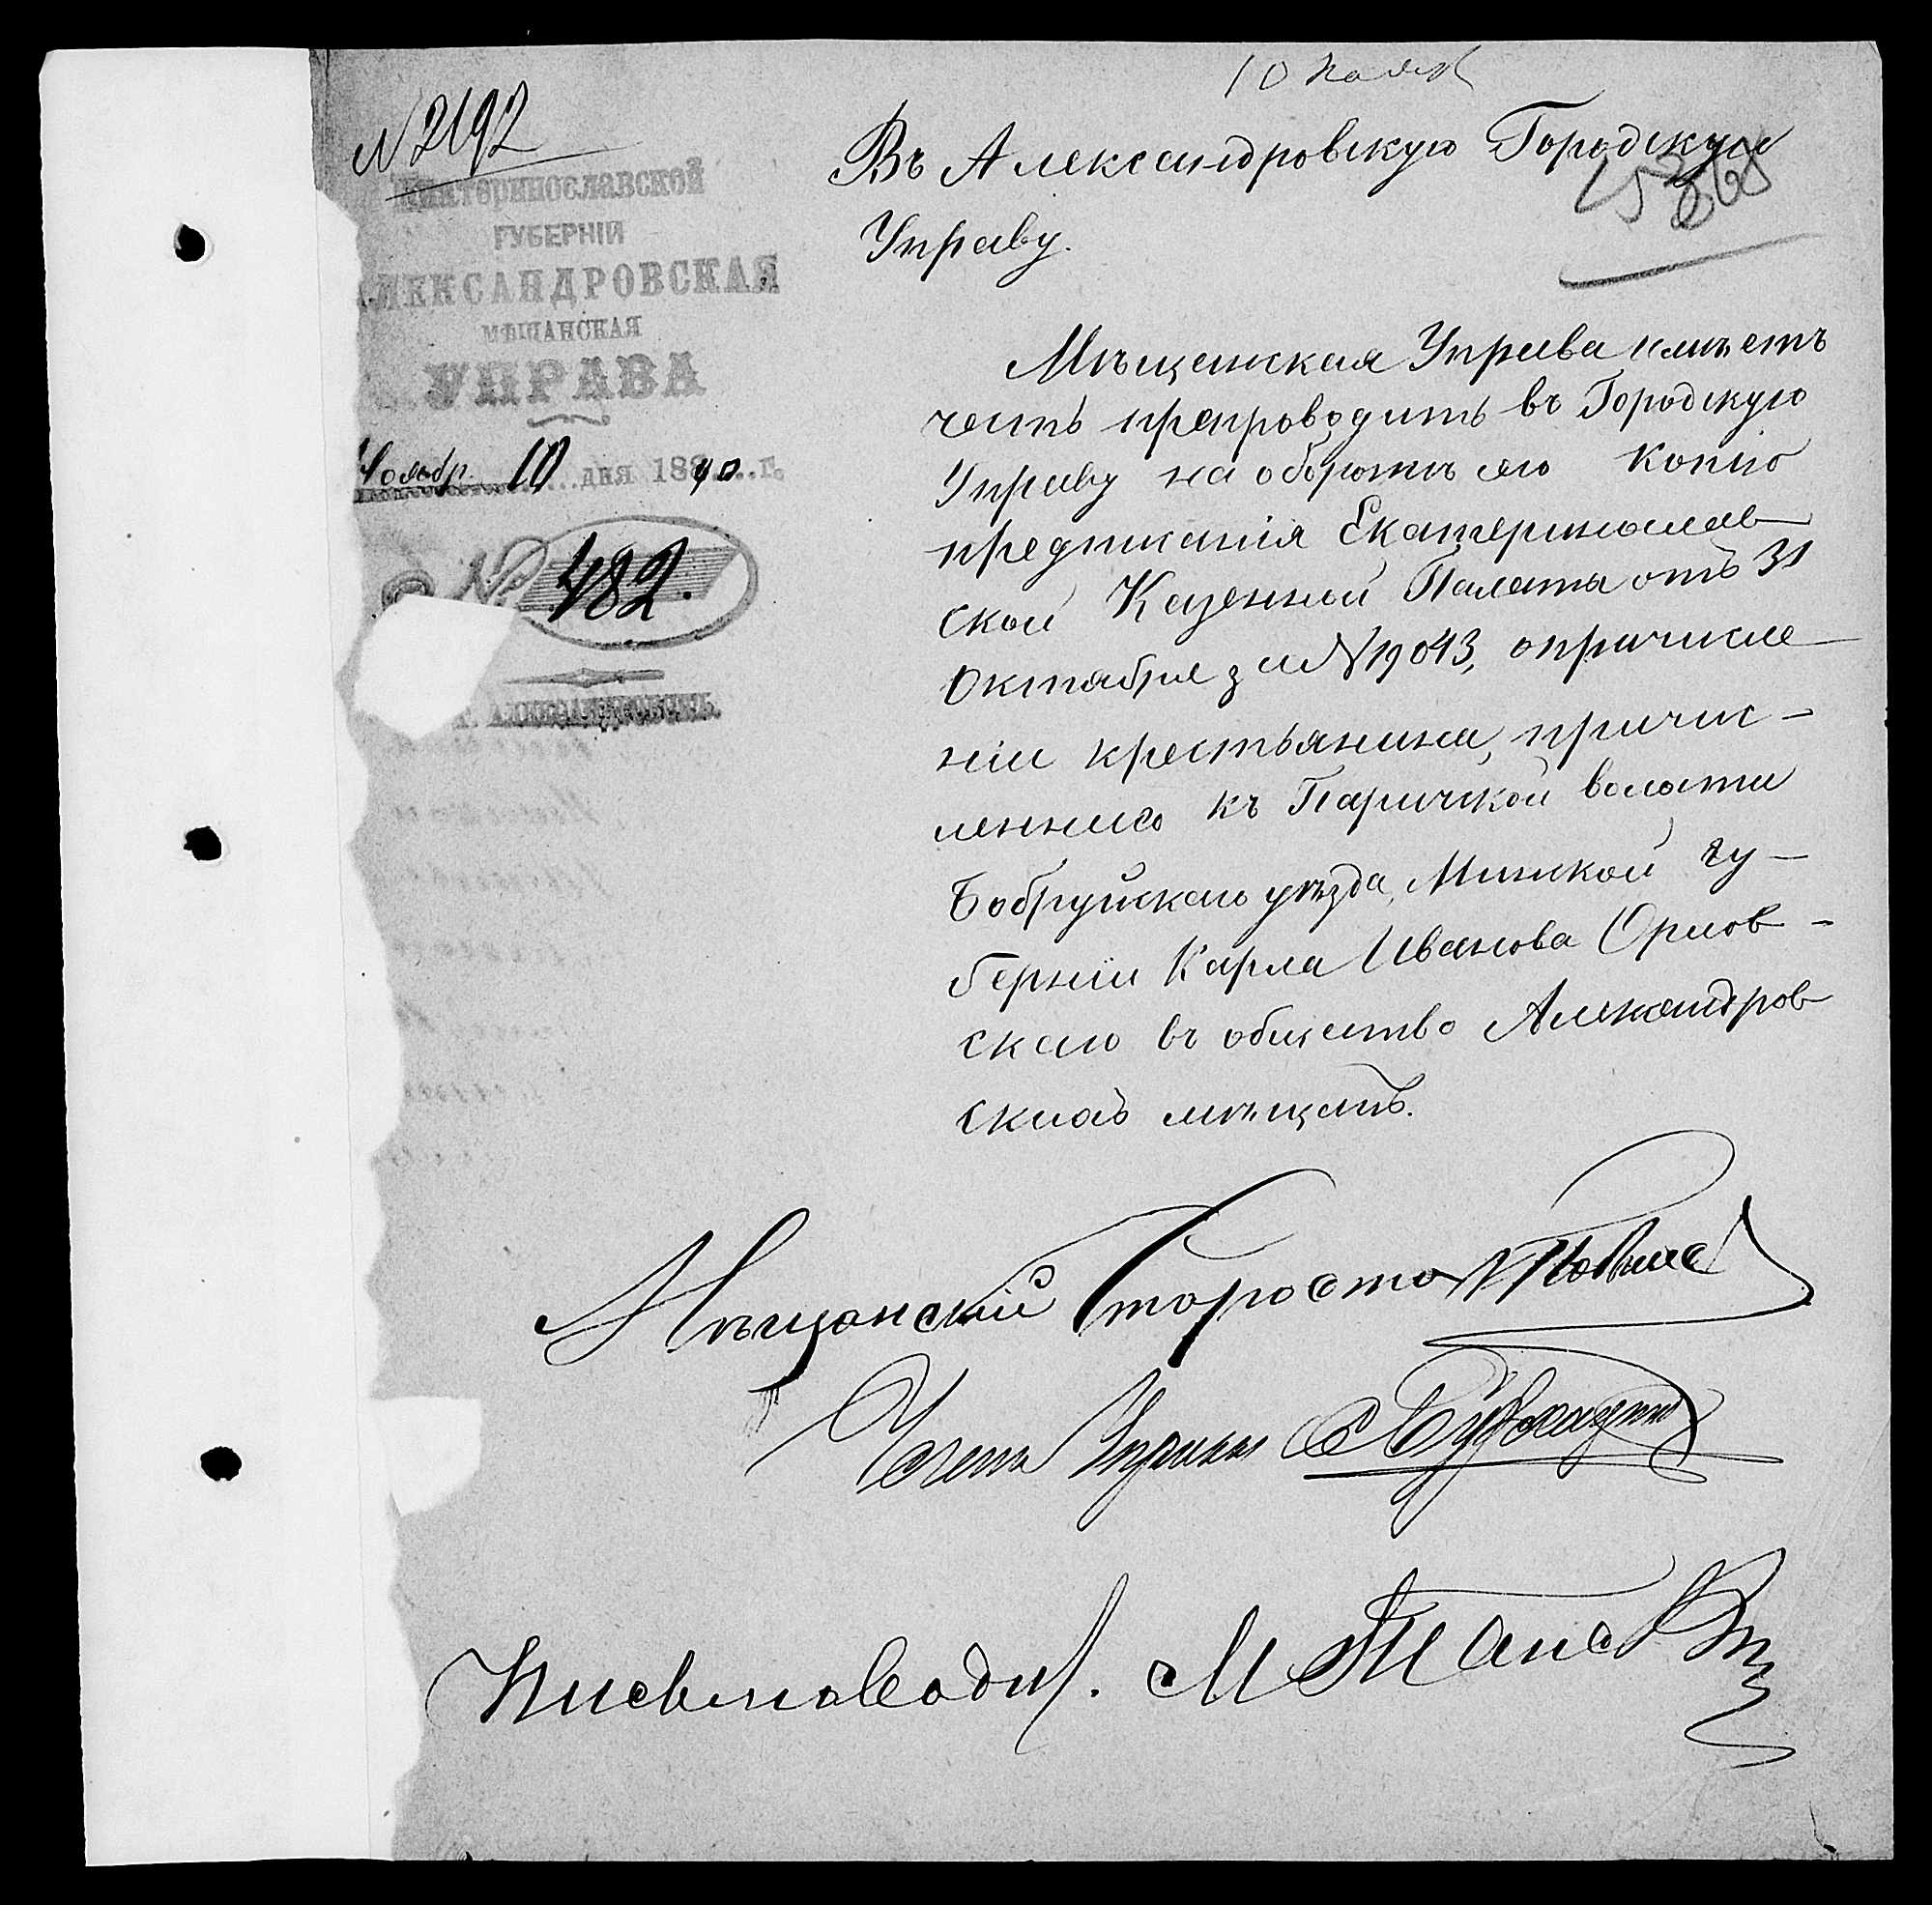 10 Нояб
N 2192
Екатеринославской
ГУБЕРНІИ
АЛЕКСАНДРОВСКАЯ
МѢЩАНСКАЯ
УПРАВА
Ноябр. 10 дня 1890 г.
№ 482.
Г. АЛЕКСАНДРОВСКЪ.
Въ Александровскую Городскую
Управу.
Мѣщанская Управа имѣетъ
честь препроводить въ Городскую
Управу на оборотѣ сего копію
предписанія Екатеринослав
ской Казенной Палаты отъ 31
Октября за N 19043, о причисле
ніи крестьянина, причис-
леннаго къ Паричской волости
Бобруйскаго уѣзда, Минской гу-
берніи Карла Иванова Орлов-
скаго въ общество Александров
скихъ мѣщанъ.
Мѣщанскій Староста
Членъ Управы
Письмоводит.